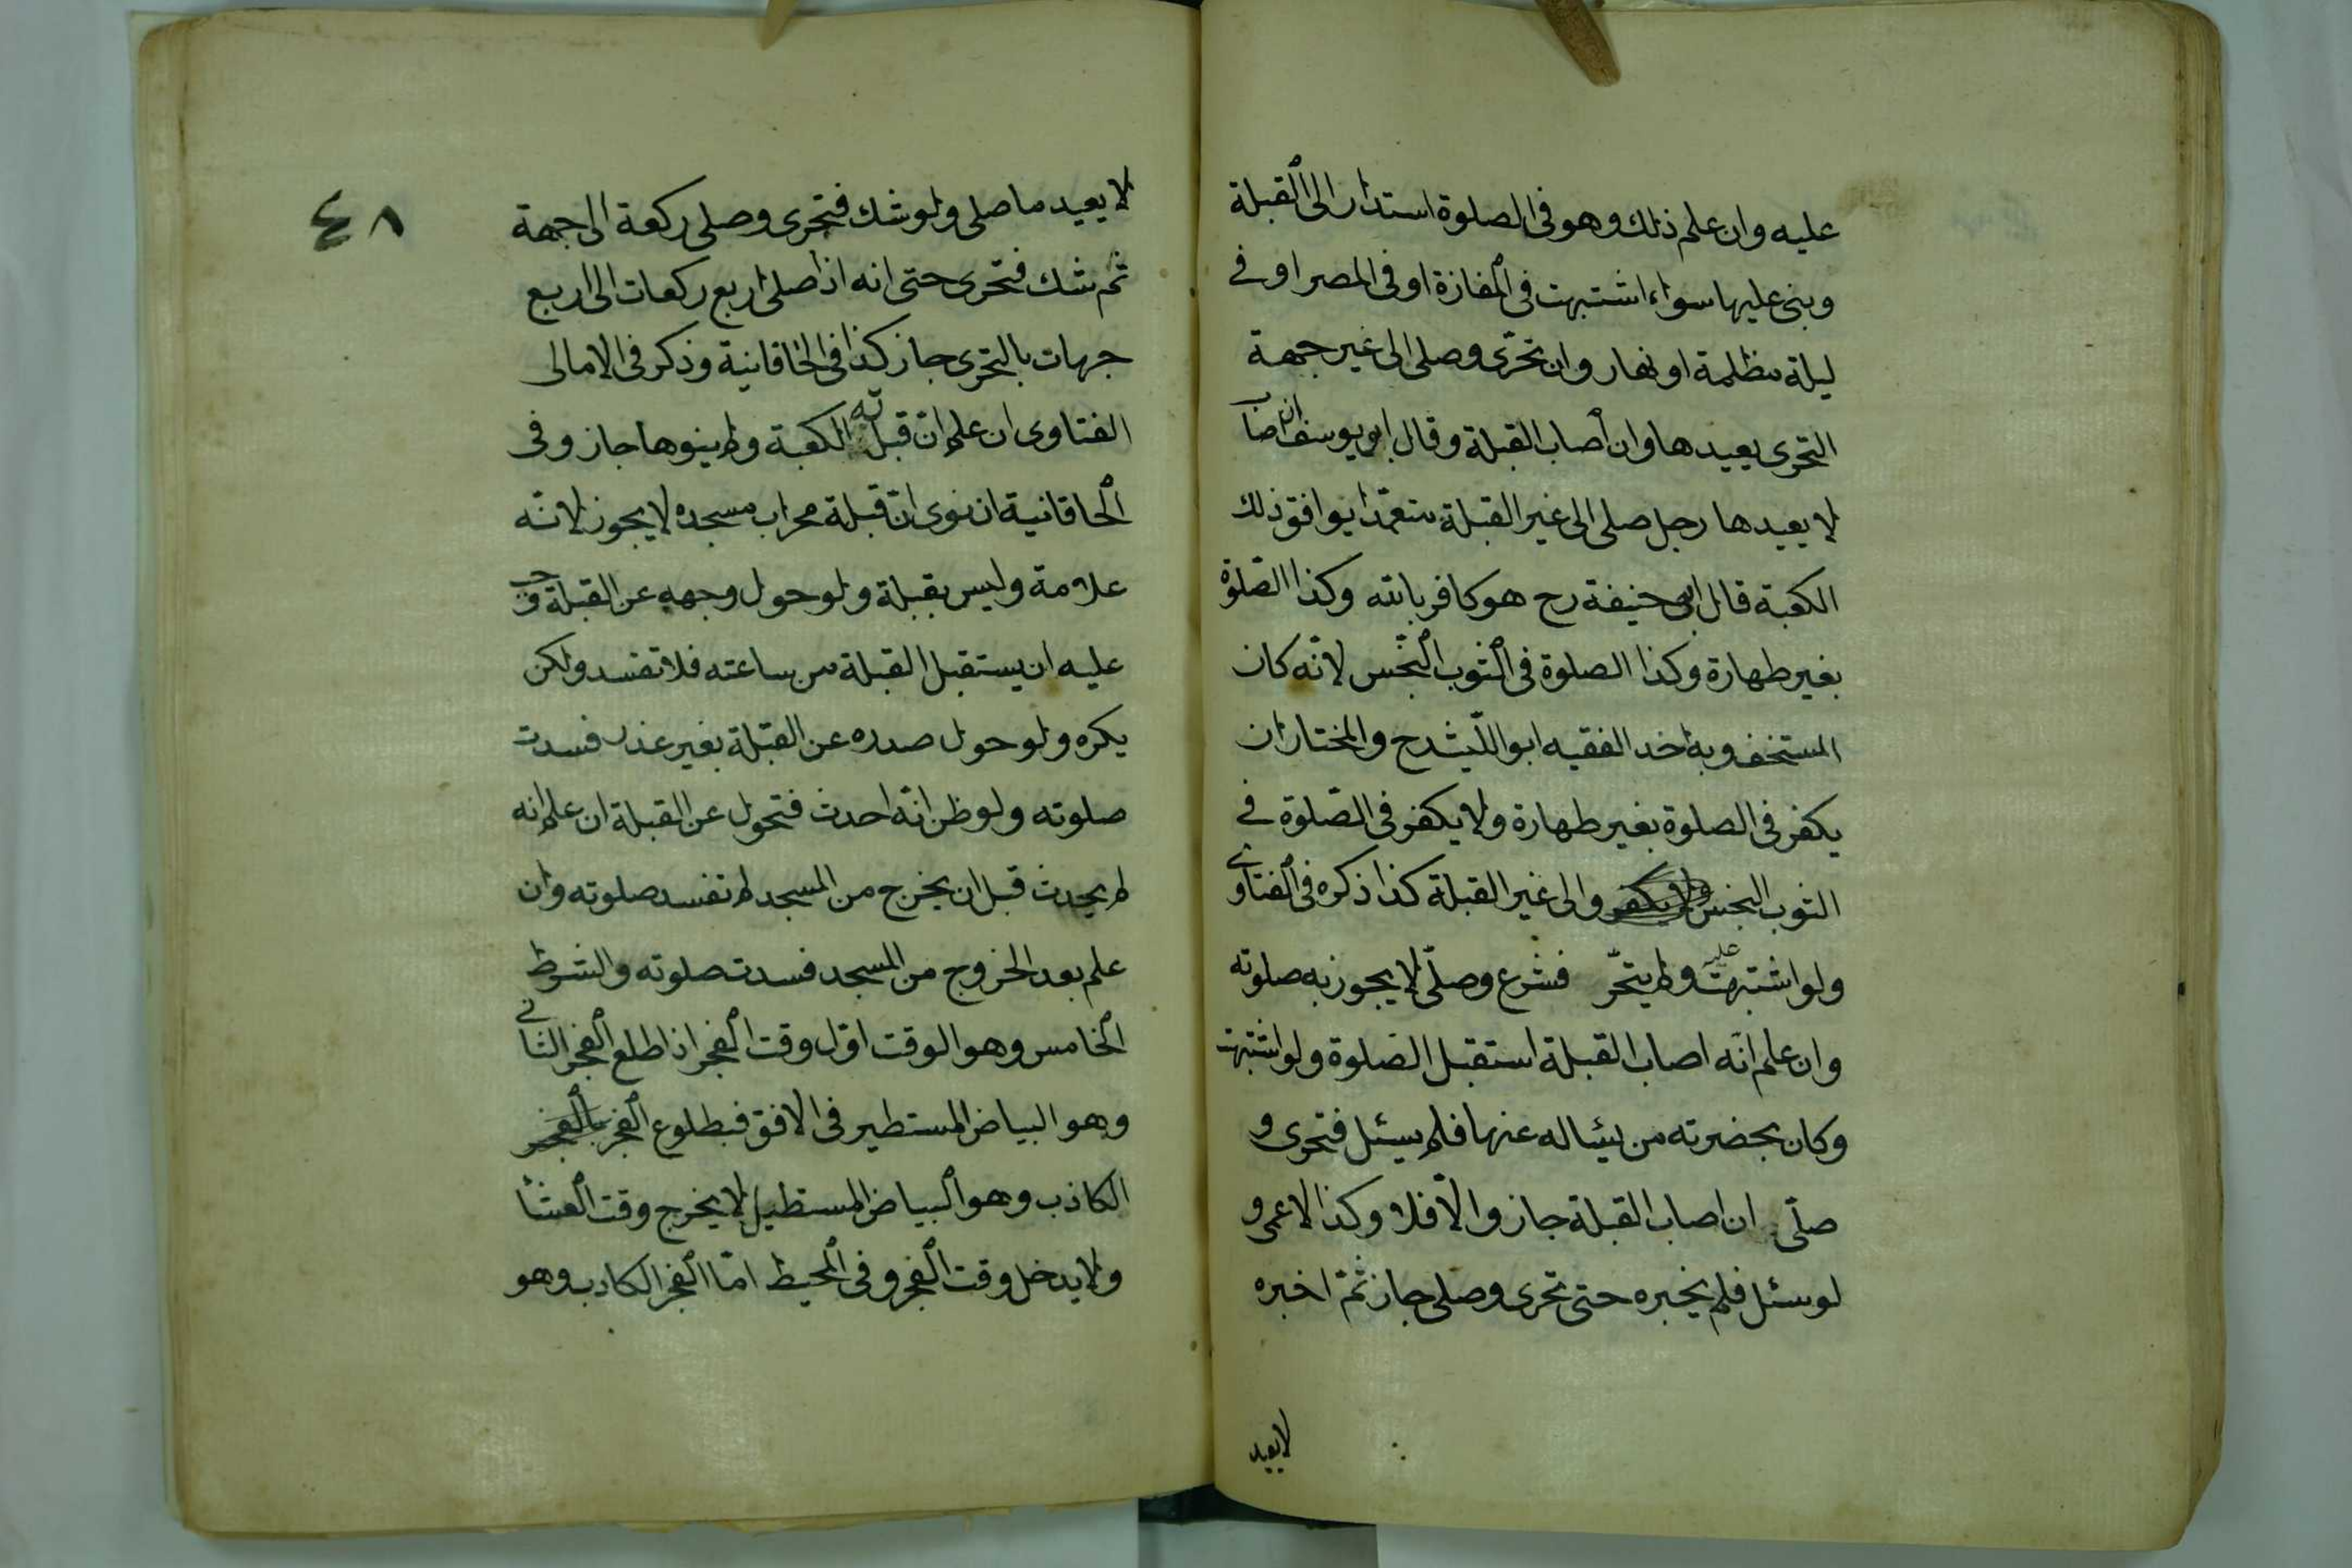 عليه وان علم ذلك وهو فى الصلوة استدار الى القبلة
وبنى عليها سواء اشتبهت فى المفازة او فى المصر او فى
ليلة مظلمة او نهار وان تحرّى وصلى الى غير جهة
التحرى يعيدها وان اصاب القبلة وقال ابو يوسف ان اصاب
لا يعيدها رجل صلى الى غير القبلة متعمّدا يوافق ذلك
الكعبة قال ابى حنيفة رح هو كافر بالله وكذا الصّلوة
بغير طهارة وكذا الصلوة فى الثوب النّجس لانّه كان
المستخف وبه اخد الفقيه ابو اللّيث رح والمختار ان
يكفر فى الصلوة بغير طهارة ولا يكفر فى الصّلوة فى
الثوب النجس والى غير القبلة كذا ذكره فى الفتاوى
ولو اشتبهت عليه ولم يتحّر فشرع وصلّى لا يجوز به صلوته
وان علم انّه اصاب القبلة استقبل الصلوة ولو اشتبهت
وكان بحضرته من يسٔاله عنها فلم يسئل فتحرى و
صلّى ان اصاب القبلة جاز والّا فلا وكذا الاعمى و
لو سئل فلم يخبره حتى تحرى وصلى جاز ثمّ اخبره
لا يعيد
٤٨
لا يعيد ما صلى ولو شك فتحرى وصلى ركعة الى جهة
ثم شك فتحرى حتى انه اذا صلى اربع ركعات الى اربع
جهات بالتحرى جاز كذا فى الخاقانية وذكر فى الامالى
الفتاوى ان علم انّ قبلته الكعبة ولم ينوها جاز وفى
الخاقانية ان نوى انّ قبلة محراب مسجده لا يجوز لانّه
علامة وليس بقبلة ولو حول وجهه عن القبلة وجب
عليه ان يستقبل القبلة من ساعته فلا تفسد ولكن
يكره ولو حول صدره عن القبلة بغير عذر فسدت
صلوته ولو ظن انّه احدث فتحول عن القبلة ان علم انه
لم يحدث قبل ان يخرج من المسجد لم تفسد صلوته وان
علم بعد الخروج من المسجد فسدت صلوته والشرط
الخامس وهو الوقت اوّل وقت الفجر اذا طلع الفجر الثانى
وهو البياض المستطير فى الافق فبطلوع الفجر
الكاذب وهو البياض المستطيل لا يخرج وقت العشا
ولا يدخل وقت الفجر وفى المحيط امّا الفجر الكادب وهو